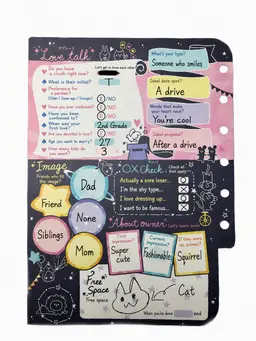 Love talk
Let's get to know each other!
Do you have a crush right now?
What is their initial?
T
Preference for a partner?
Have you ever confessed?
YES/NO
Have you been confessed to?
YES/NO
When was your first love?
2nd Grade
Are you decided in love?
YES/NO
Age you want to marry?
27
How many kids do you want?
3
What's your type?
Someone who smiles
Ideal date spot?
A drive
Words that make your heart race?
You're cool
Ideal proposal?
After a drive
Image
Friends who fit the image!
Dad
Friend
None
Siblings
Mom
OX Check
Check all that apply!
Actually a sore loser...
I'm the shy type...
I love dressing up...
I want to be famous...
About owner
Let's learn more
First impression?
Super cute
Current impression?
Fashionable
If they were an animal?
Squirrel
Free Space
Free Space
Cat
When you're done
end